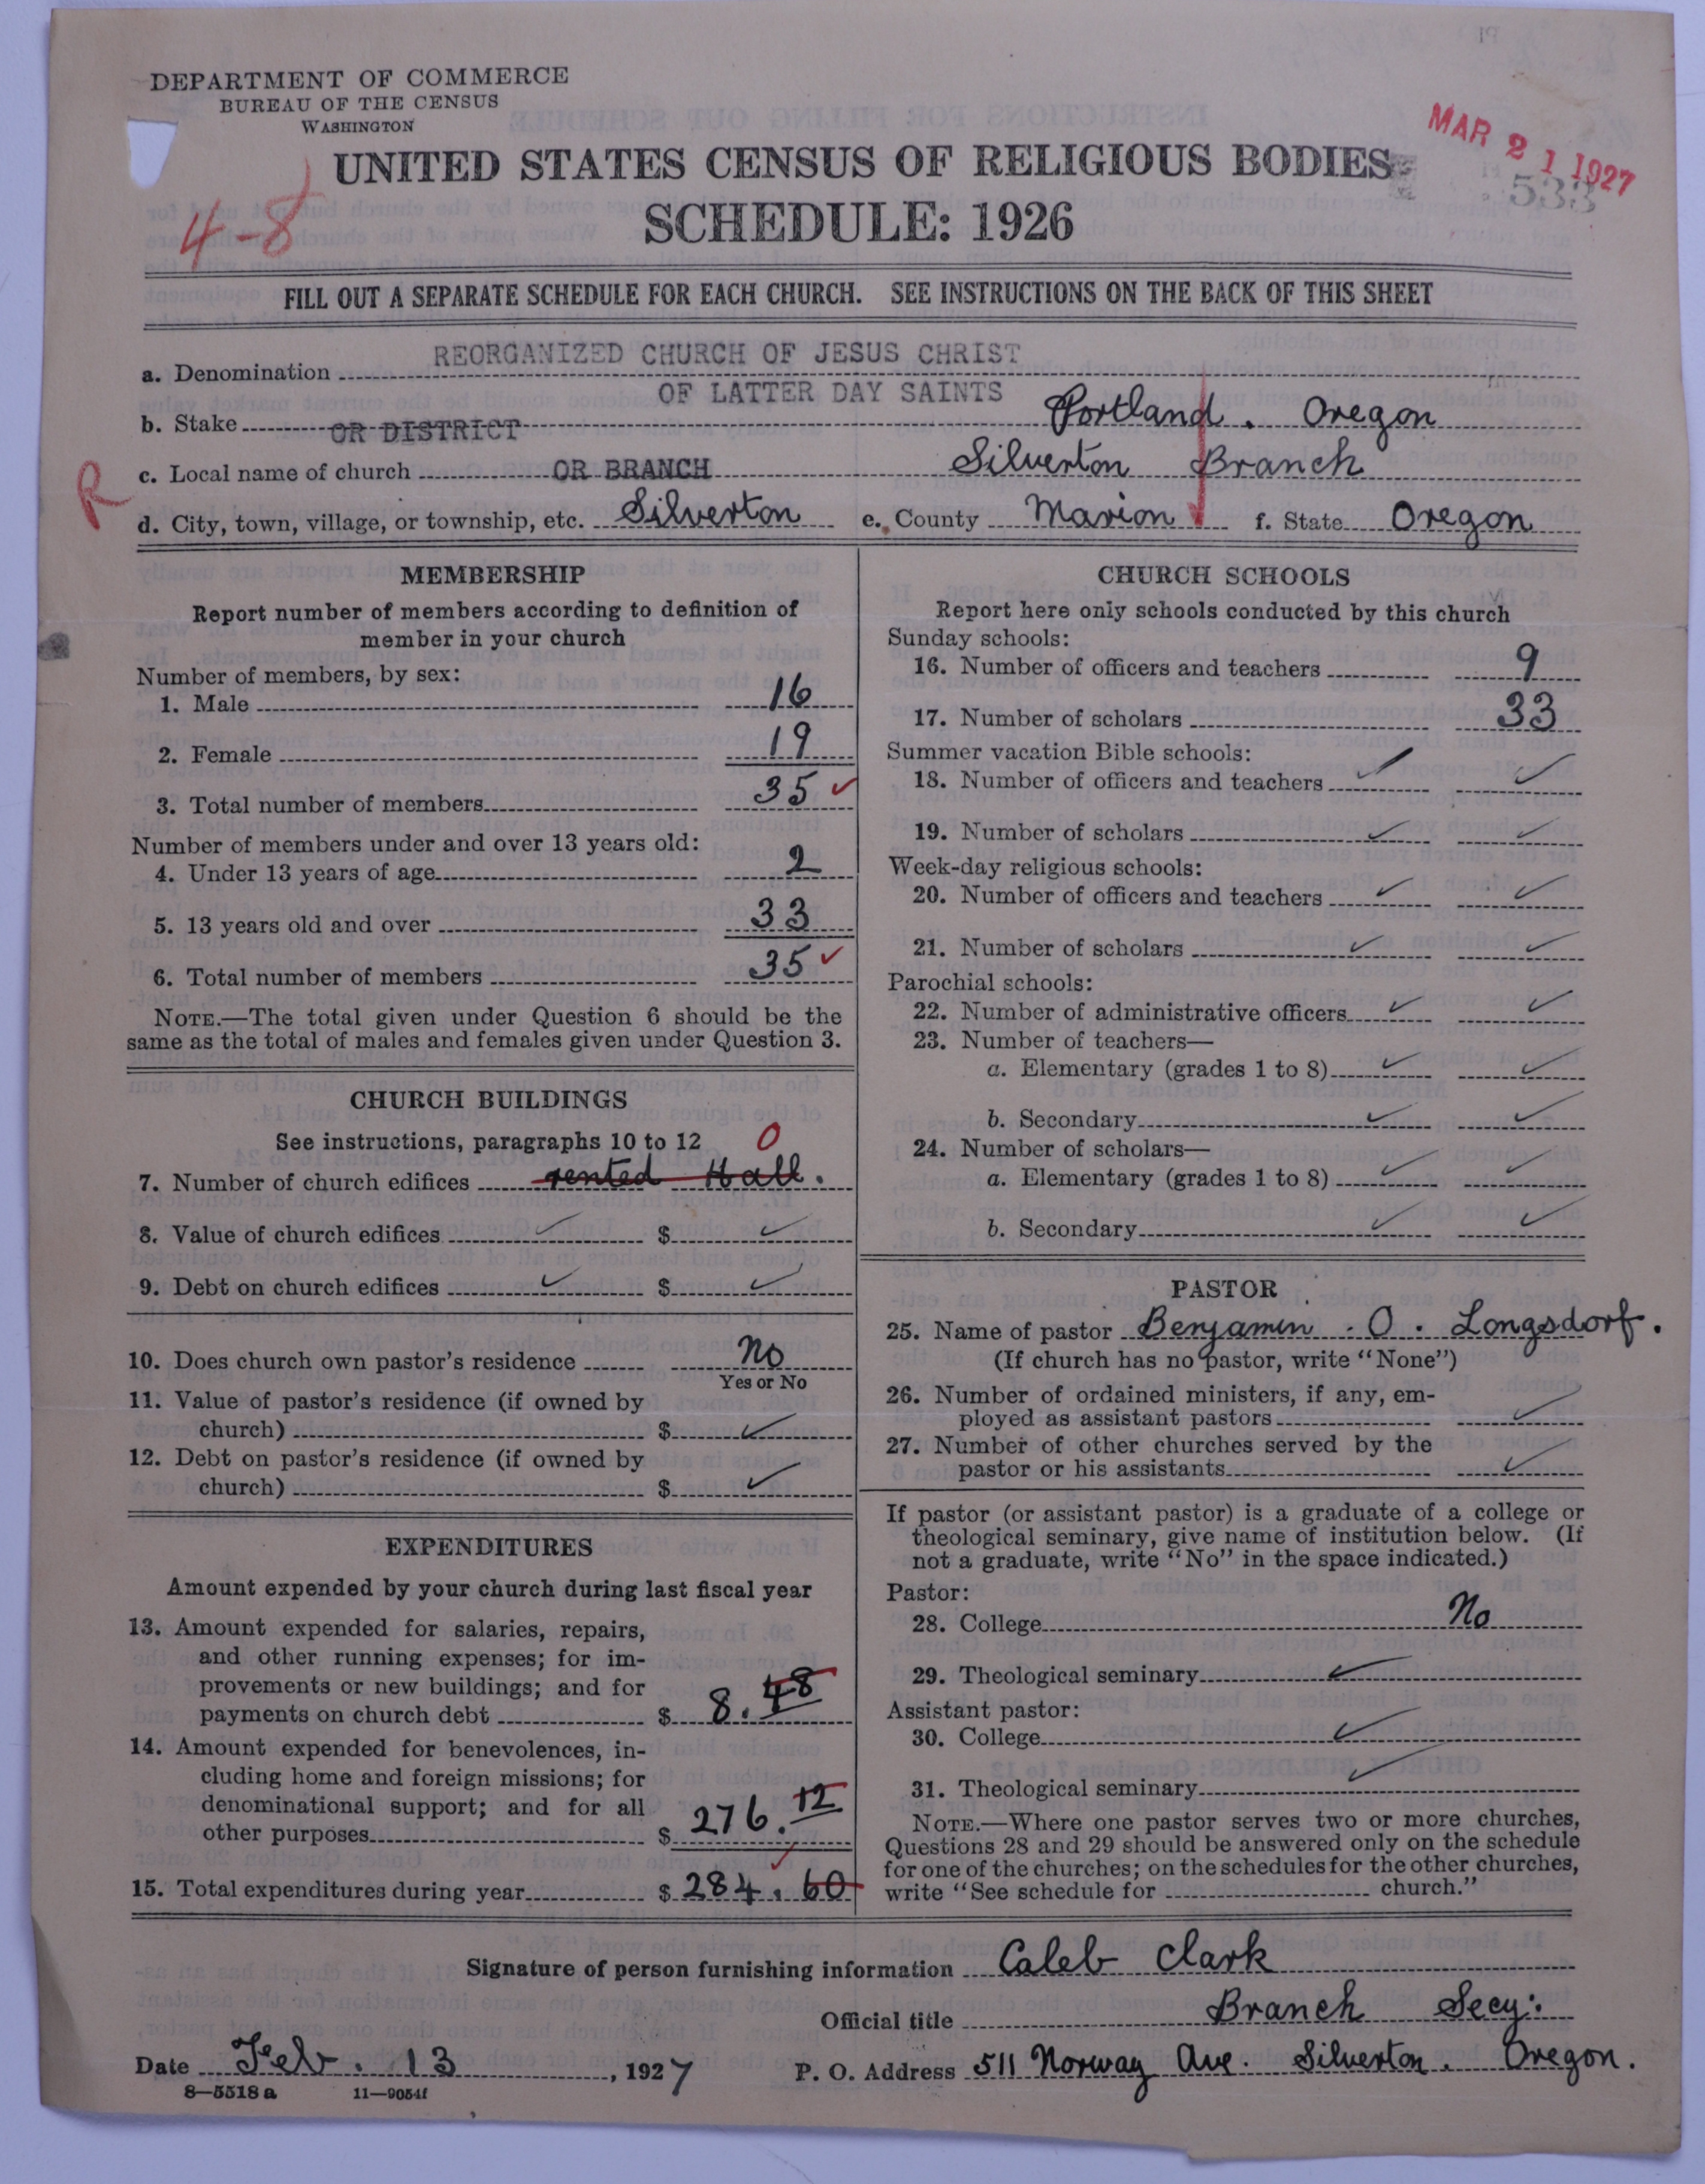 DEPARTMENT OF COMMERCE
BUREAU OF THE CENSUS
WASHINGTON
MAR 21 1927
533
UNITED STATES CENSUS OF RELIGIOUS BODIES
4-8
SCHEDULE: 1926
FILL OUT A SEPARATE SCHEDULE FOR EACH CHURCH. SEE INSTRUCTIONS ON THE BACK OF THIS SHEET
a. Denomination REORGANIZED CHURCH OF JESUS CHRIST
OF LATTER DAY SAINTS
b. Stake OR DISTRICT Portland. Oregon
R
c. Local name of church OR BRANCH Silverton Branch
d. City, town, village, or township, etc. Silverton e. County Marion f. State Oregon
MEMBERSHIP
Report number of members according to definition of
member in your church
Number of members, by sex:
1. Male 16
2. Female 19
3. Total number of members 35 ✓
Number of members under and over 13 years old:
4. Under 13 years of age 2
5. 13 years old and over 33
6. Total number of members 35 ✓
NOTE.—The total given under Question 6 should be the
same as the total of males and females given under Question 3.
CHURCH BUILDINGS
See instructions, paragraphs 10 to 12 0
7. Number of church edifices rented Hall.
8. Value of church edifices ✓ $ ✓
9. Debt on church edifices ✓ $ ✓
10. Does church own pastor's residence No
Yes or No
11. Value of pastor's residence (if owned by
church) $ ✓
12. Debt on pastor's residence (if owned by
church) $ ✓
EXPENDITURES
Amount expended by your church during last fiscal year
13. Amount expended for salaries, repairs,
and other running expenses; for im-
provements or new buildings; and for
payments on church debt $ 8.48
14. Amount expended for benevolences, in-
cluding home and foreign missions; for
denominational support; and for all
other purposes $ 276.12
✓
15. Total expenditures during year $ 284.60
CHURCH SCHOOLS
Report here only schools conducted by this church
Sunday schools:
16. Number of officers and teachers 9
17. Number of scholars 33
Summer vacation Bible schools:
18. Number of officers and teachers ✓ ✓
19. Number of scholars ✓ ✓
Week-day religious schools:
20. Number of officers and teachers ✓ ✓
21. Number of scholars ✓ ✓
Parochial schools:
22. Number of administrative officers ✓ ✓
23. Number of teachers—
a. Elementary (grades 1 to 8) ✓ ✓
b. Secondary ✓ ✓
24. Number of scholars—
a. Elementary (grades 1 to 8) ✓ ✓
b. Secondary ✓ ✓
PASTOR
25. Name of pastor Benjamin O. Longsdorf.
(If church has no pastor, write "None")
26. Number of ordained ministers, if any, em-
ployed as assistant pastors ✓
27. Number of other churches served by the
pastor or his assistants ✓
If pastor (or assistant pastor) is a graduate of a college or
theological seminary, give name of institution below. (If
not a graduate, write "No" in the space indicated.)
Pastor:
28. College No
29. Theological seminary ✓
Assistant pastor:
30. College ✓
31. Theological seminary ✓
NOTE.—Where one pastor serves two or more churches,
Questions 28 and 29 should be answered only on the schedule
for one of the churches; on the schedules for the other churches,
write "See schedule for church."
Signature of person furnishing information Caleb Clark
Official title Branch Secy.
Date Feb. 13, 1927 P. O. Address 511 Norway Ave. Silverton. Oregon.
8—5518 a 11—9054f